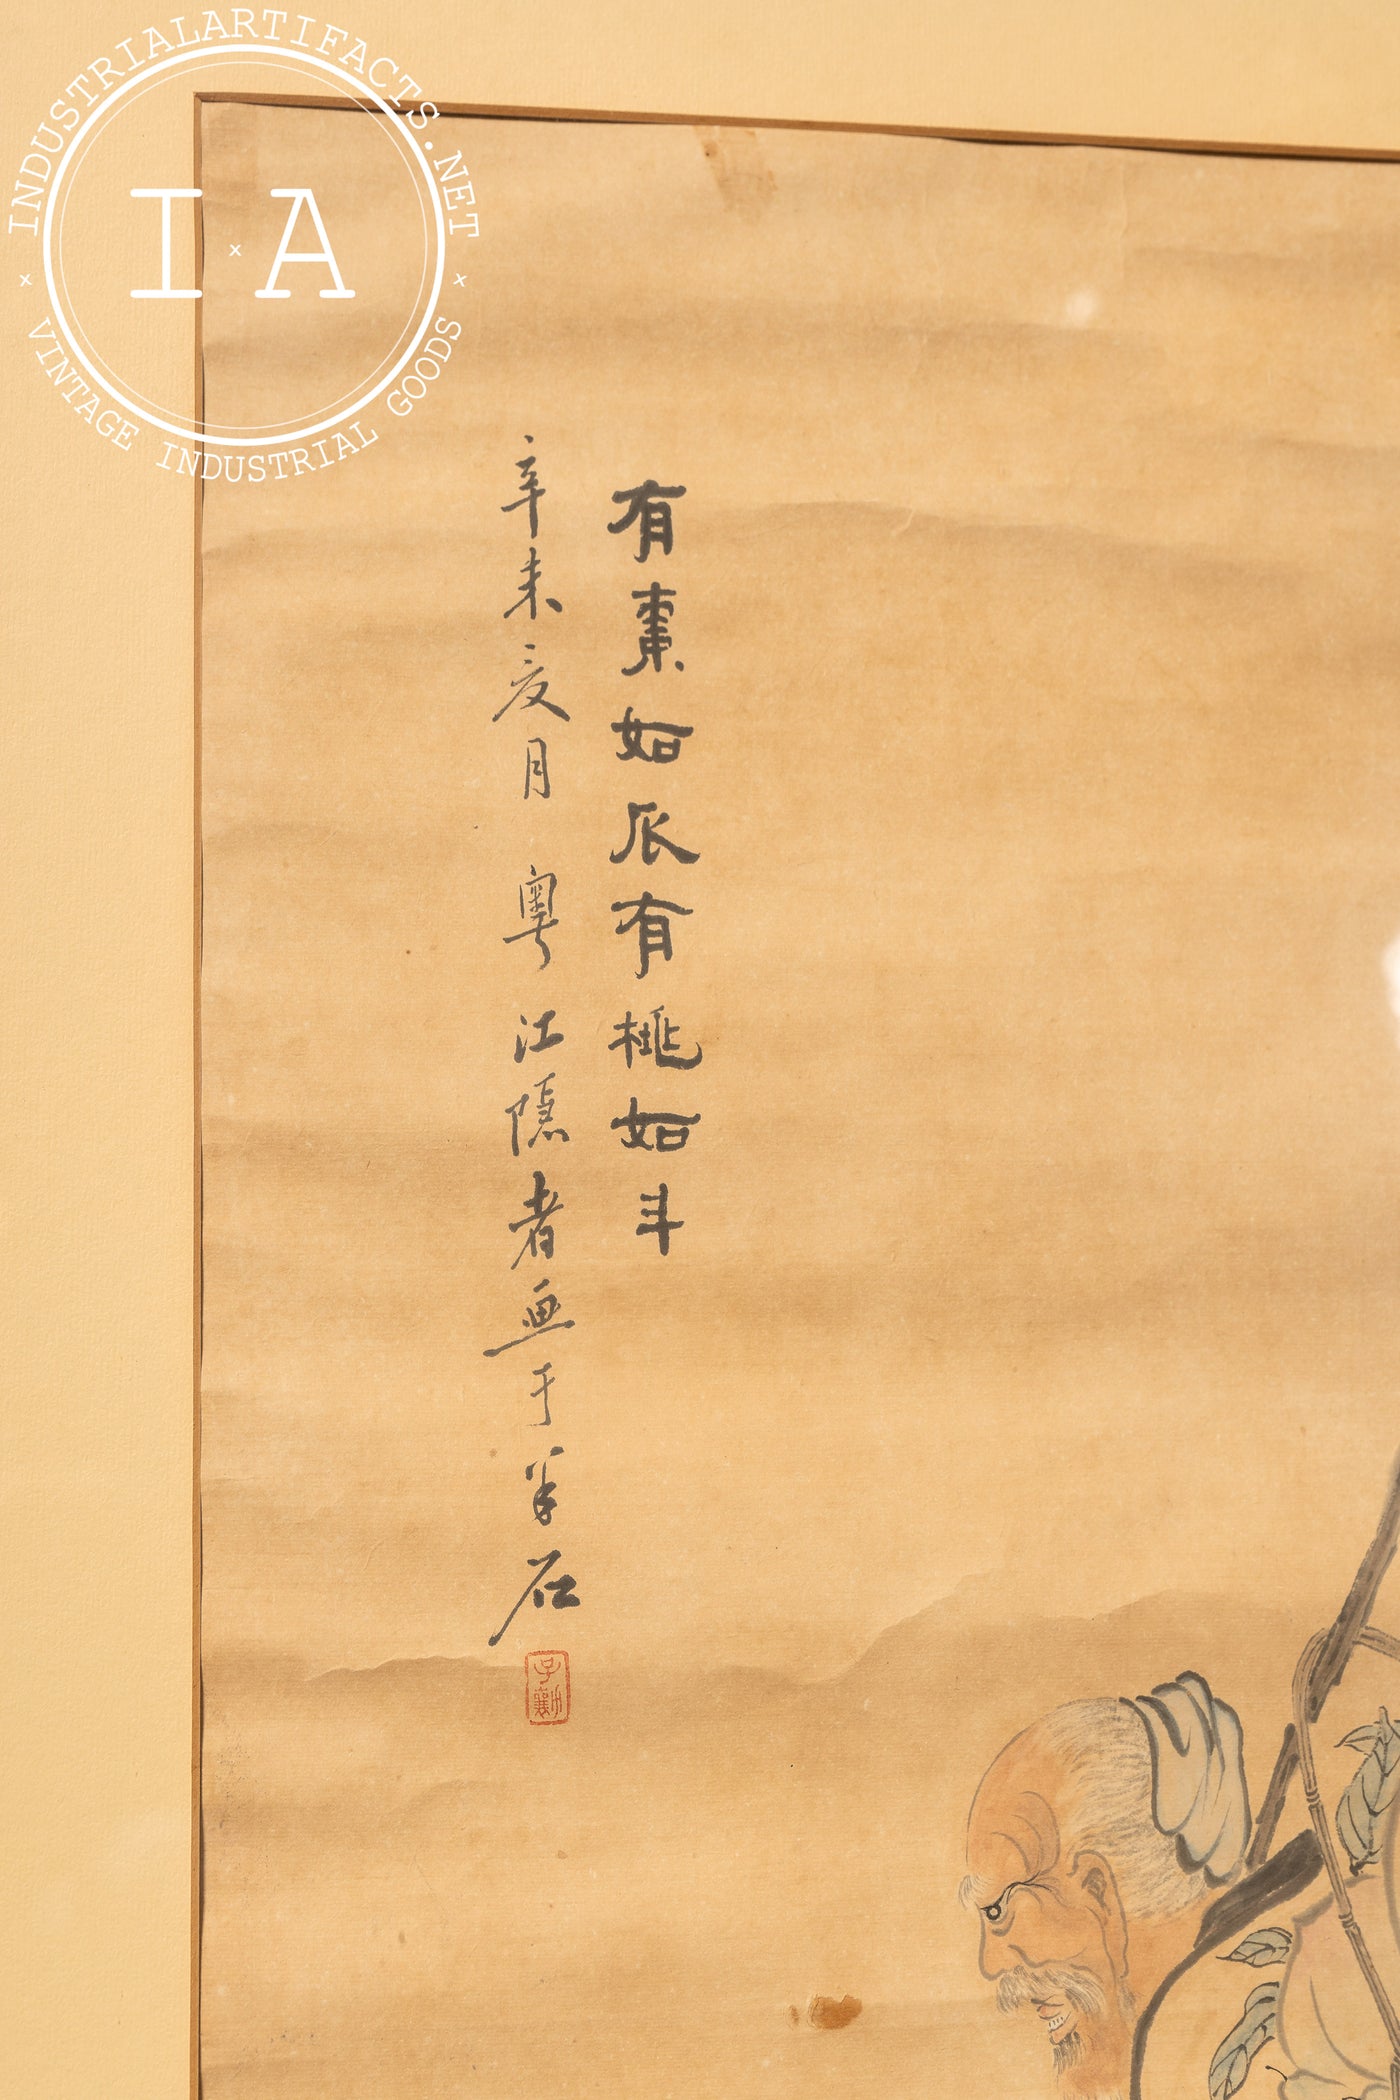 INDUSTRIALARTIFACTS.NET
I × A
× VINTAGE INDUSTRIAL GOODS ×
有棗如瓜有桃如斗
辛未夏月 粵江隱者画于羊石
子勷